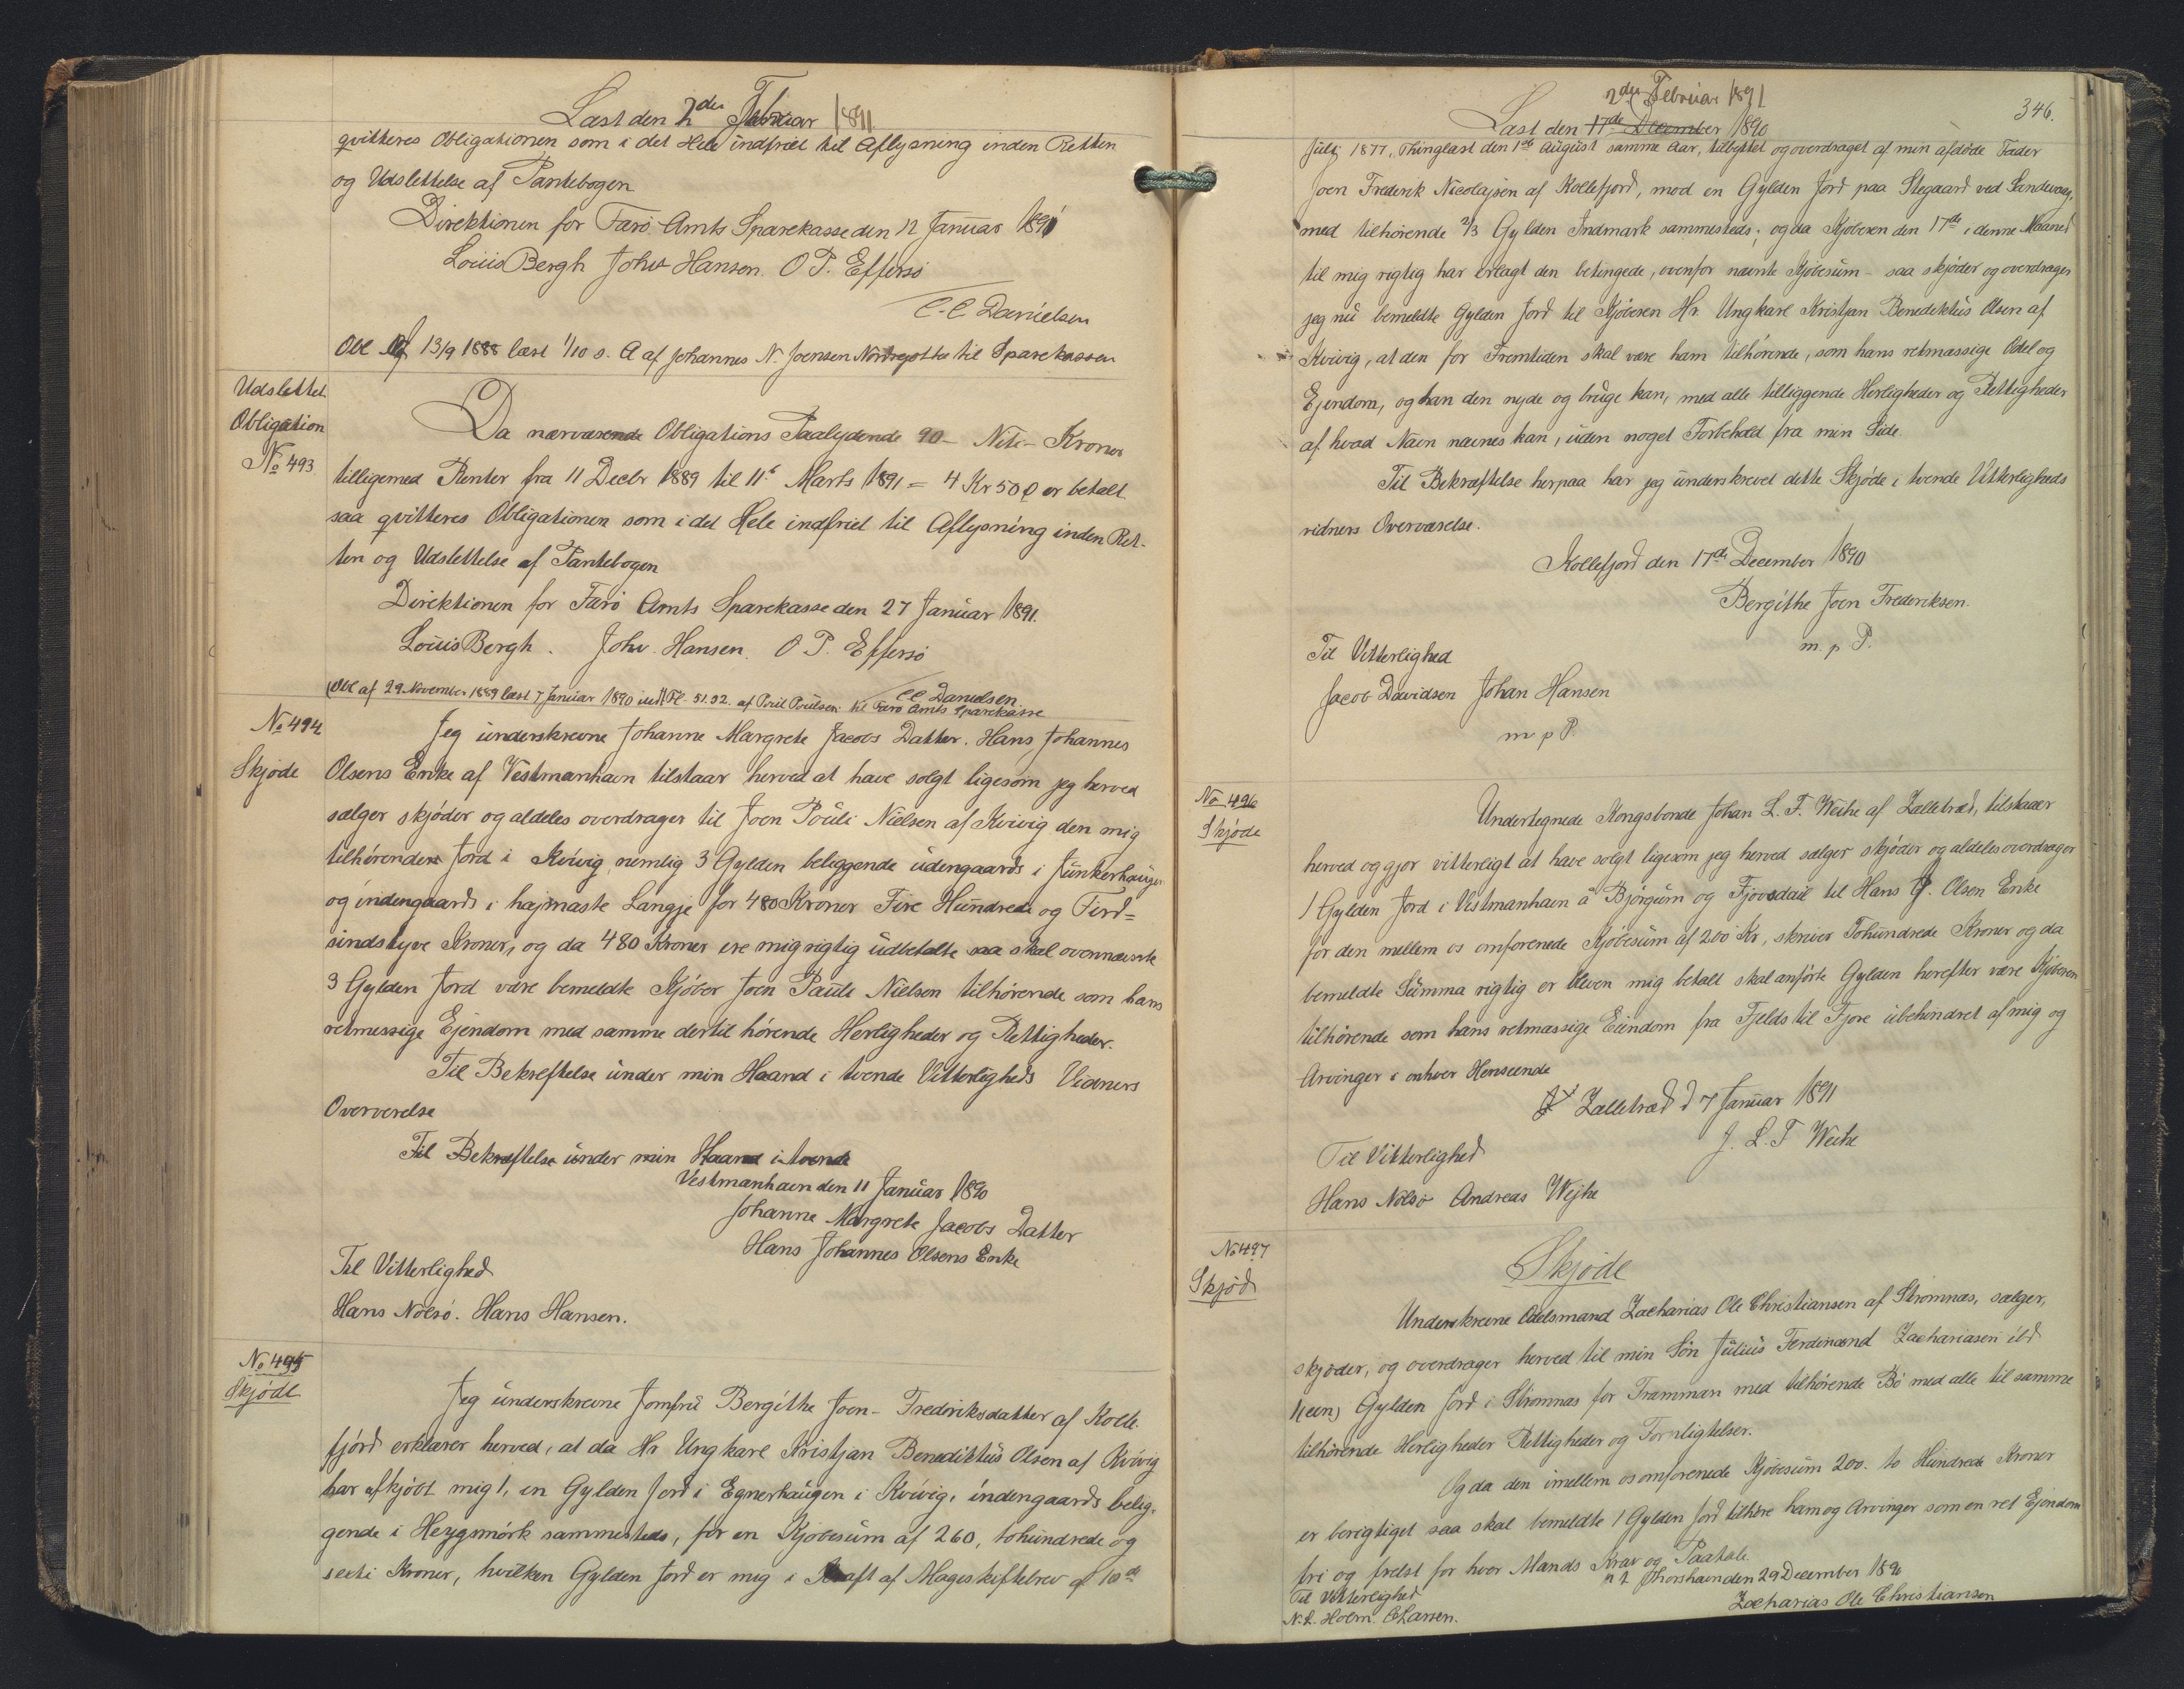 Læst den 2den Februar 1891
qvitteres Obligationen som i det Hele indfriet til Aflysning inden Retten
og Udslettelse af Pantebogen
Direktionen for Færø Amts Sparekasse den 12 Januar 1891
Louis Bergh Johs Hansen. O P. Effersø
C. C. Danielsen
Obl af 13/9 1888 læst 1/10 s. A af Johannes N. Joensen Nordregøtte til Sparekassen
Udslettet
Obligation
No 493.
Da nærværende Obligations Paalydende 90 - Niti - Kroner
tilligemed Renter fra 11 Decbr 1889 til 11te Marts 1891 = 4 Kr 50 Ø er betalt
saa qvitteres Obligationen som i det Hele indfriet til Aflysning inden Ret-
ten og Udslettelse af Pantebogen
Direktionen for Færø Amts Sparekasse den 27 Januar 1891.
Louis Bergh. Johs. Hansen. O P. Effersø
CC Danielsen.
Obl af 29 November 1889 læst 7 Januar 1890 indf Fl. 51.52. af Poul Poulsen til Færø Amts Sparekasse
No 494
Skjøde
Jeg underskrevne Johanne Margrete Jacobs Datter. Hans Johannes
Olsens Enke af Vestmanhavn tilstaar herved at have solgt ligesom jeg herved
sælger skjøder og aldeles overdrager til Joen Pouli Nielsen af Kvivig den mig
tilhørendes Jord i Kvivig, nemlig 3 Gylden beliggende udengaards i Junkerhaugen
og indengaards i hajmaste Langje for 480 Kroner Fire Hundrede og Fird=
sindstyve Kroner, og da 480 Kroner ere mig rigtig udbetalte saa skal ovennævnte
3 Gylden Jord være bemeldte Kjøber Joen Pauli Nielsen tilhørende som hans
retmessige Ejendom med samme dertil hørende Herligheder og Rettigheder.
Til Bekreftelse under min Haand i tvende Vitterligheds Vidners
Oververelse
Til Bekræftelse under min Haand i tvende
Vestmanhavn den 11 Januar 1890
Johanne Margrete Jacobs Datter
Hans Johannes Olsens Enke
Til Vitterlighed
Hans Nolsø. Hans Hansen.
No 495
Skjøde
Jeg underskrevne Jomfru Bergithe Joen - Frederiksdatter af Kolle-
fjord erklærer herved, at da Hr Ungkarl Kristjan Benediktus Olsen af Kvivig
har afkjøbt mig 1, en Gylden Jord i Egnerhaugen i Kvivig, indengaards belig-
gende i Heygsmørk sammesteds, for en Kjøbesum af 260, tohundrede og
sexti Kroner, hvilken Gylden Jord er mig i Kraft af Mageskiftebrev af 10de
346.
2den Februar 1891
Læst den 17de December 1890
July 1877, Thinglæst den 1ste August samme Aar, tilbyttet og overdraget af min afdøde Fader
Joen Frederik Nicolajsen af Kollefjord, mod en Gylden Jord paa Stegaard ved Sandevaag,
med tilhørende 2/3 Gylden Indmark sammesteds; og da Kjøberen den 17de i denne Maaned
til mig rigtig har erlagt den betingede, ovenfor nævnte Kjøbesum - saa skjøder og overdrager
jeg nu bemeldte Gylden Jord til Kjøberen Hr. Ungkarl Kristjan Benediktus Olsen af
Kvivig, at den for Fremtiden skal være ham tilhørende, som hans retmæssige Odel og
Ejendom, og han den nyde og bruge kan, med alle tilliggende Herligheder og Rettigheder
af hvad Navn nævnes kan, uden noget Forbehold fra min Side.
Til Bekræftelse herpaa har jeg underskrevet dette Skjøde i tvende Vitterligheds
vidners Overværelse.
Kollefjord den 17de December 1890
Bergithe Joen Frederiksen.
m. p. P.
Til Vitterlighed
Jacob Davidsen Johan Hansen
m p P.
No 496
Skjøde
Undertegnede Kongsbonde Johan L. F. Weihe af Zalletræd, tilstaaer
herved og gjør vitterligt at have solgt ligesom jeg herved sælger skjøder og aldeles overdrager
1 Gylden Jord i Vestmanhavn å Bjørgum og Fjovsdall til Hans J. Olsen Enke
for den mellem os omforenede Kjøbesum af 200 Kr, skriver Tohundrede Kroner og da
bemeldte Summa rigtig er bleven mig betalt skal anførte Gylden herefter være Kjøberen
tilhørende som hans retmæssige Eiendom fra Fjelds til Fjøre ubehindret af mig og
Arvinger i enhver Henseende
Zalletræd d 7 Januar 1891
J. L. F Weihe
Til Vitterlighed
Hans Nolsø Andreas Wejhe
No 497
Skjød
Skjøde
Underskrevne Odelsmand Zacharias Ole Christiansen af Strømnæs, sælger,
skjøder, og overdrager herved til min Søn Julius Ferdinand Zachariasen ibd
1 (een) Gylden Jord i Strømnæs for Tramman med tilhørende Bø med alle til samme
tilhørende Herligheder Rettigheder og Forpligtelser.
Og da den imellem os omforenede Kjøbesum 200. to Hundrede Kroner
er berigtiget saa skal bemeldte 1 Gylden Jord tilhøre ham og Arvinger som en ret Ejendom
fri og frelst for hver Mands Krav og Paatale.
p t Thorshavn den 29 December 1890
Zacharias Ole Christiansen
Til Vitterlighed
N. L. Holm. C Larsen.